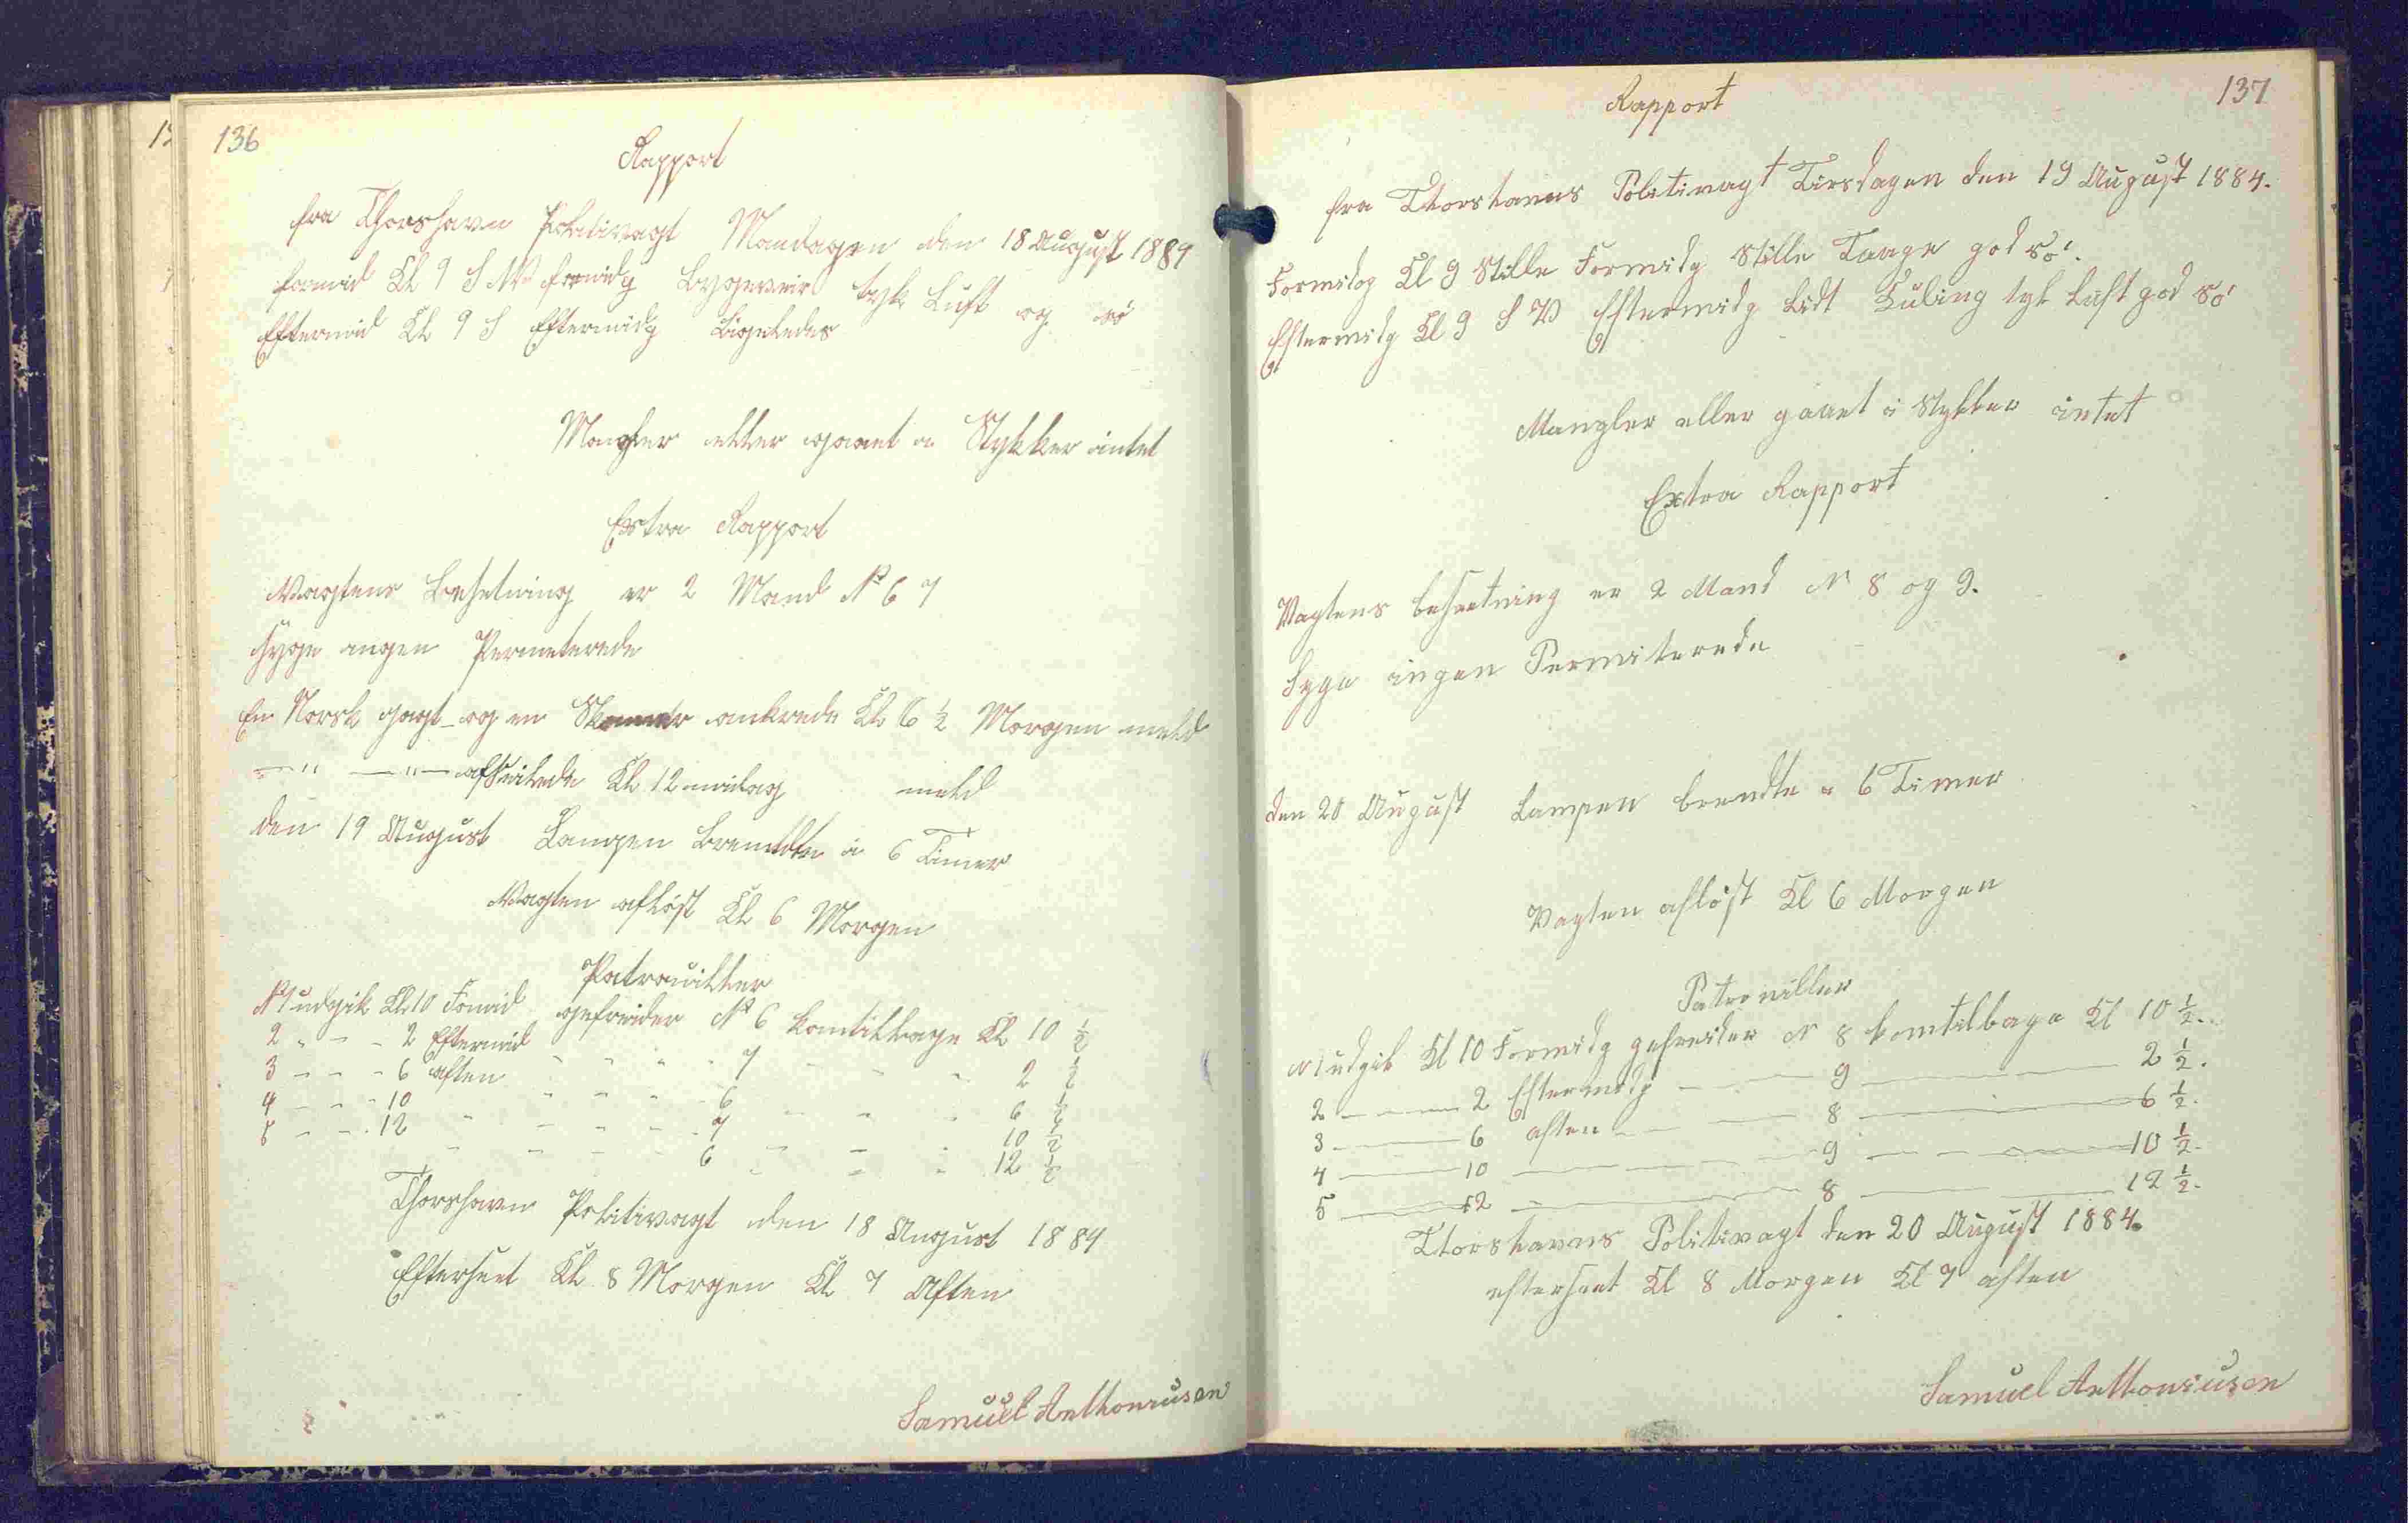 136
Rapport
fra Thorshavn Politivagt Mandagen den 18 August 1884
formid Kl 9 S W formidg Bygeveir tyk Luft og sö
Eftermid Kl 9 S Eftermidg Ligeledes
Mangler eller gaaet i Stykker intet
Extra Rapport
Vagtens Besetning er 2 Mand No 6 7
Syge ingen Permeterede
En Norsk Jagt og en Skonnert ankrede Kl 6 ½ Morgen meld
—"— —"— afseilede Kl 12 midag meld
den 19 August Lampen Brendte i 6 Timer
Vagten aflöst Kl 6 Morgen
Patrouiller
No 1 udgik Kl 10 Formid gefreider No 6 komtilbage Kl 10 ½
2 " - - 2 Eftermid - - - - 7 - - - 2 ½
3 - - - 6 aften - - - - 6 - - - 6 ½
4 - - - 10 - - - - - 7 - - - 10 ½
5 - - - 12 - - - - - 6 - - - 12 ½
Thorshavn Politivagt den 18 August 1884
Efterseet Kl 8 Morgen Kl 7 Aften
Samuel Anthoniusen
137
Rapport
fra Thorshavns Politivagt Tirsdagen den 19 August 1884.
Formidg Kl 9 Stille Formidg Stille Taage god Sö.
Eftermidg Kl 9 S V Eftermidg Lidt Kuling tyk Luft god Sö
Mangler eller gaaet i Stykker intet
Extra Rapport
Vagtens besaetning er 2 Mand N 8 og 9.
Syge ingen Permiterede
den 20 August Lampen brendte i 6 Timer
Vagten aflöst Kl 6 Morgen
Patroviller
N 1 udgik Kl 10 Formidg gefreider N 8 komtilbage Kl 10 ½.
2 ——— 2 Eftermidg ——— 9 ——— 2 ½.
3 ——— 6 aften ——— 8 ——— 6 ½.
4 ——— 10 ——— 9 ——— 10 ½.
5 ——— 12 ——— 8 ——— 12 ½.
Thorshavns Politivagt den 20 August 1884.
efterseet Kl 8 Morgen Kl 7 aften
Samuel Anthoniusen